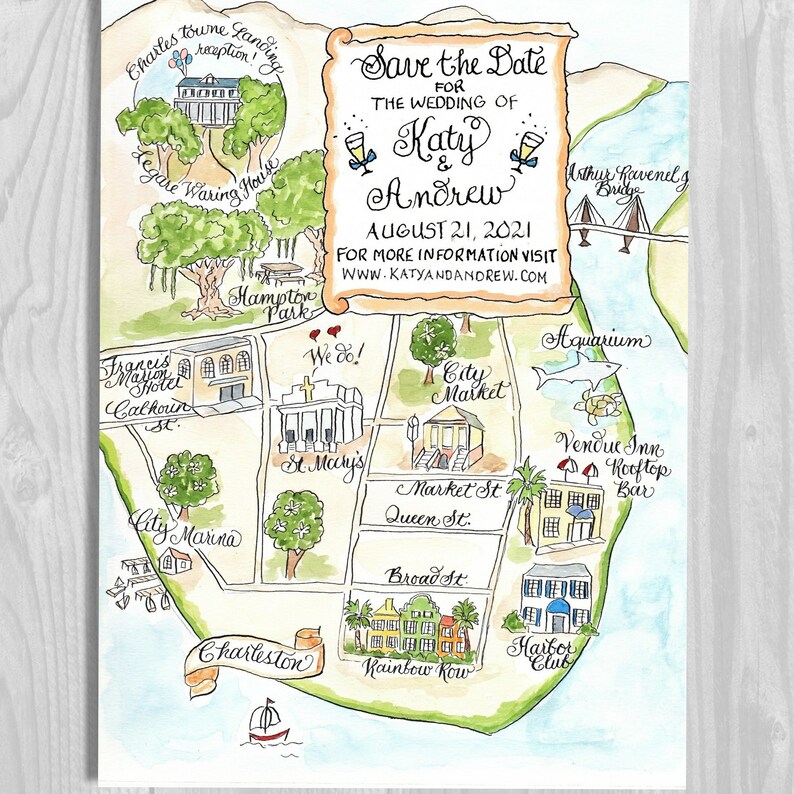 Charles towne Landing
reception!
Legare Waring House
Save the Date
FOR
THE WEDDING OF
Katy
&
Andrew
AUGUST 21, 2021
FOR MORE INFORMATION VISIT
WWW.KATYANDANDREW.COM
Arthur Ravenel Jr
Bridge
Hampton
Park
We do!
Francis
Marion
Hotel
Calhoun
St.
St. Mary's
City
Market
Aquarium
Vendue Inn
Rooftop
Bar
Market St
Queen St.
City Marina
Broad St.
Harbor
Club
Rainbow Row
Charleston